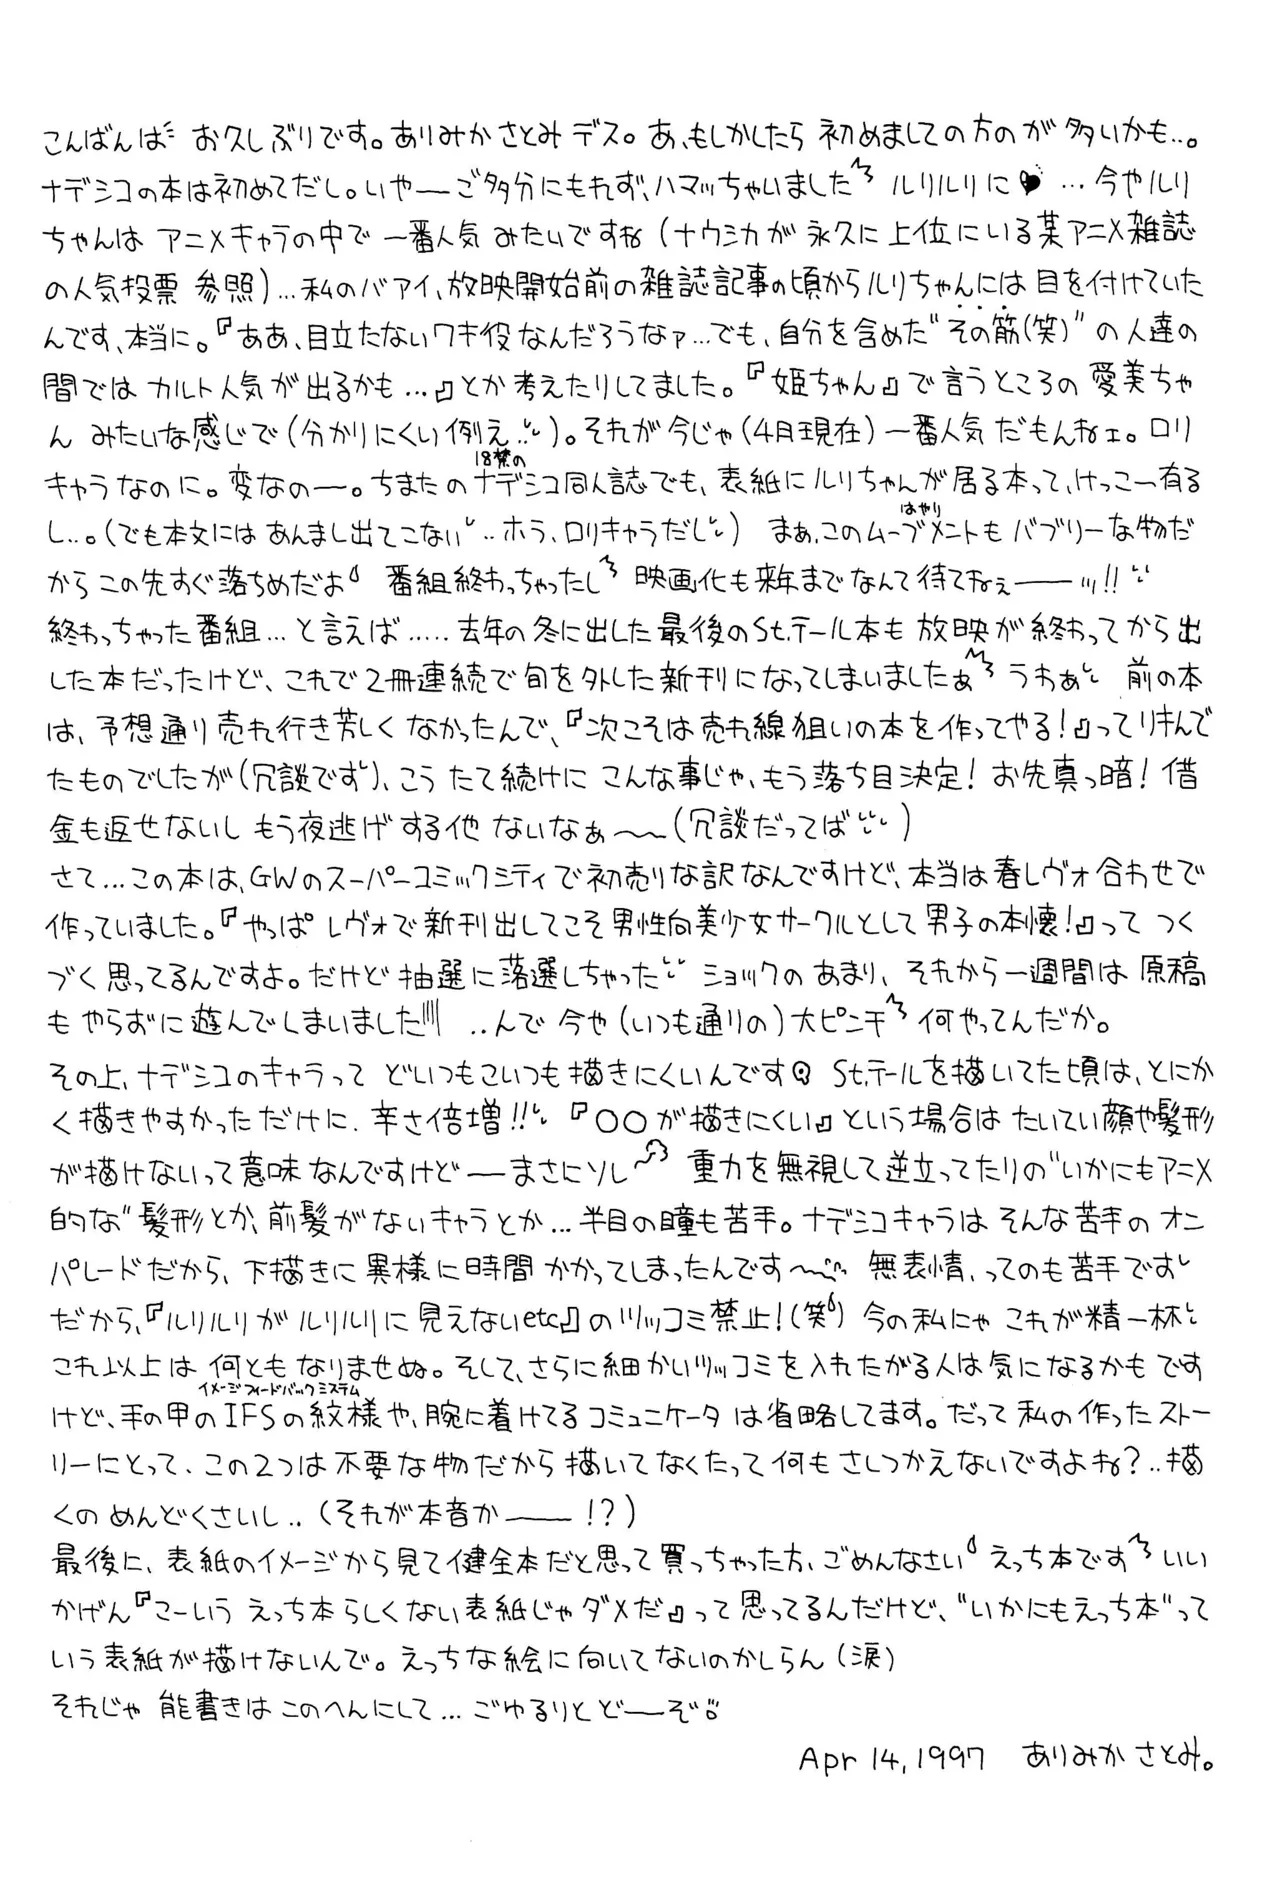 こんばんは お久しぶりです。ありみかさとみデス。あ、もしかしたら 初めましての方のが多いかも…。
ナデシコの本は初めてだし。いやーご多分にもれず、ハマッちゃいました ルリルリに♥ …今やルリ
ちゃんは アニメキャラの中で 一番人気 みたいですね (ナウシカが 永久に上位にいる某アニメ雑誌
の人気投票 参照)…私のバアイ、放映開始前の雑誌記事の頃からルリちゃんには 目を付けていた
んです、本当に。『ああ、目立たないワキ役なんだろうなァ…でも、自分を含めた“その筋(笑)”の人達の
間では カルト人気が出るかも…』とか考えたりしてました。『姫ちゃん』で言うところの 愛美ちゃ
ん みたいな感じで(分かりにくい例え…)。それが今じゃ(4月現在)一番人気だもんねェ。ロリ
キャラなのに。変なのー。ちまたの
18禁の
ナデシコ同人誌でも、表紙にルリちゃんが居る本って、けっこー有る
し…。(でも本文には あんまし出てこない…ホラ、ロリキャラだし) まぁ、この
はやり
ムーブメントも バブリーな物だ
からこの先すぐ落ちめだよ 番組終わっちゃったし 映画化も来年までなんて待てねぇーーッ!!
終わっちゃった番組…と言えば……去年の冬に出した最後のSt.テール本も 放映が終わってから出
した本だったけど、これで2冊連続で旬を外した新刊になってしまいましたぁ うわぁ 前の本
は、予想通り売れ行き芳しくなかったんで、『次こそは売れ線狙いの本を作ってやる!』ってリキんで
たものでしたが(冗談です)、こう たて続けに こんな事じゃ、もう落ち目決定! お先真っ暗! 借
金も返せないし もう夜逃げする他 ないなぁ〜〜(冗談だってば)
さて…この本は、GWのスーパーコミックシティで初売りな訳なんですけど、本当は春レヴォ合わせで
作っていました。『やっぱ レヴォで新刊出してこそ男性向美少女サークルとして男子の本懐!』って つく
づく思ってるんですよ。だけど 抽選に落選しちゃった ショックの あまり、それから一週間は 原稿
も やらずに 遊んでしまいました ‥んで 今や(いつも通りの)大ピンチ 何やってんだか。
その上、ナデシコのキャラって どいつもこいつも描きにくいんです St.テールを描いてた頃は、とにか
く描きやすかっただけに、辛さ倍増!!『○○が描きにくい』という場合は たいてい顔や髪形
が描けないって意味なんですけどーまさにソレ 重力を無視して逆立ってたりの“いかにもアニメ
的な”髪形とか、前髪がないキャラとか…半目の瞳も苦手。ナデシコキャラは そんな苦手の オン
パレードだから、下描きに異様に時間かかってしまったんです〜 無表情、ってのも苦手です
だから、『ルリルリがルリルリに見えないetc』のツッコミ禁止!(笑) 今の私にゃ これが精一杯
これ以上は 何ともなりませぬ。そして、さらに細かいツッコミを入れたがる人は気になるかも です
けど、手の甲の
イメージフィードバックシステム
IFSの紋様や、腕に着けてるコミュニケータ は省略してます。だって私の作ったストー
リーにとって、この2つは不要な物だから描いてなくたって何もさしつかえないですよね?‥描
くの めんどくさいし‥(それが本音かーー!?)
最後に、表紙のイメージから見て健全本だと思って買っちゃった方、ごめんなさい えっち本です いい
かげん『こーいう えっち本らしくない表紙じゃダメだ』って思ってるんだけど、“いかにもえっち本”って
いう表紙が描けないんで。えっちな絵に向いてないのかしらん(涙)
それじゃ 能書きはこのへんにして…ごゆるりとどーぞ
Apr 14,1997 ありみかさとみ。